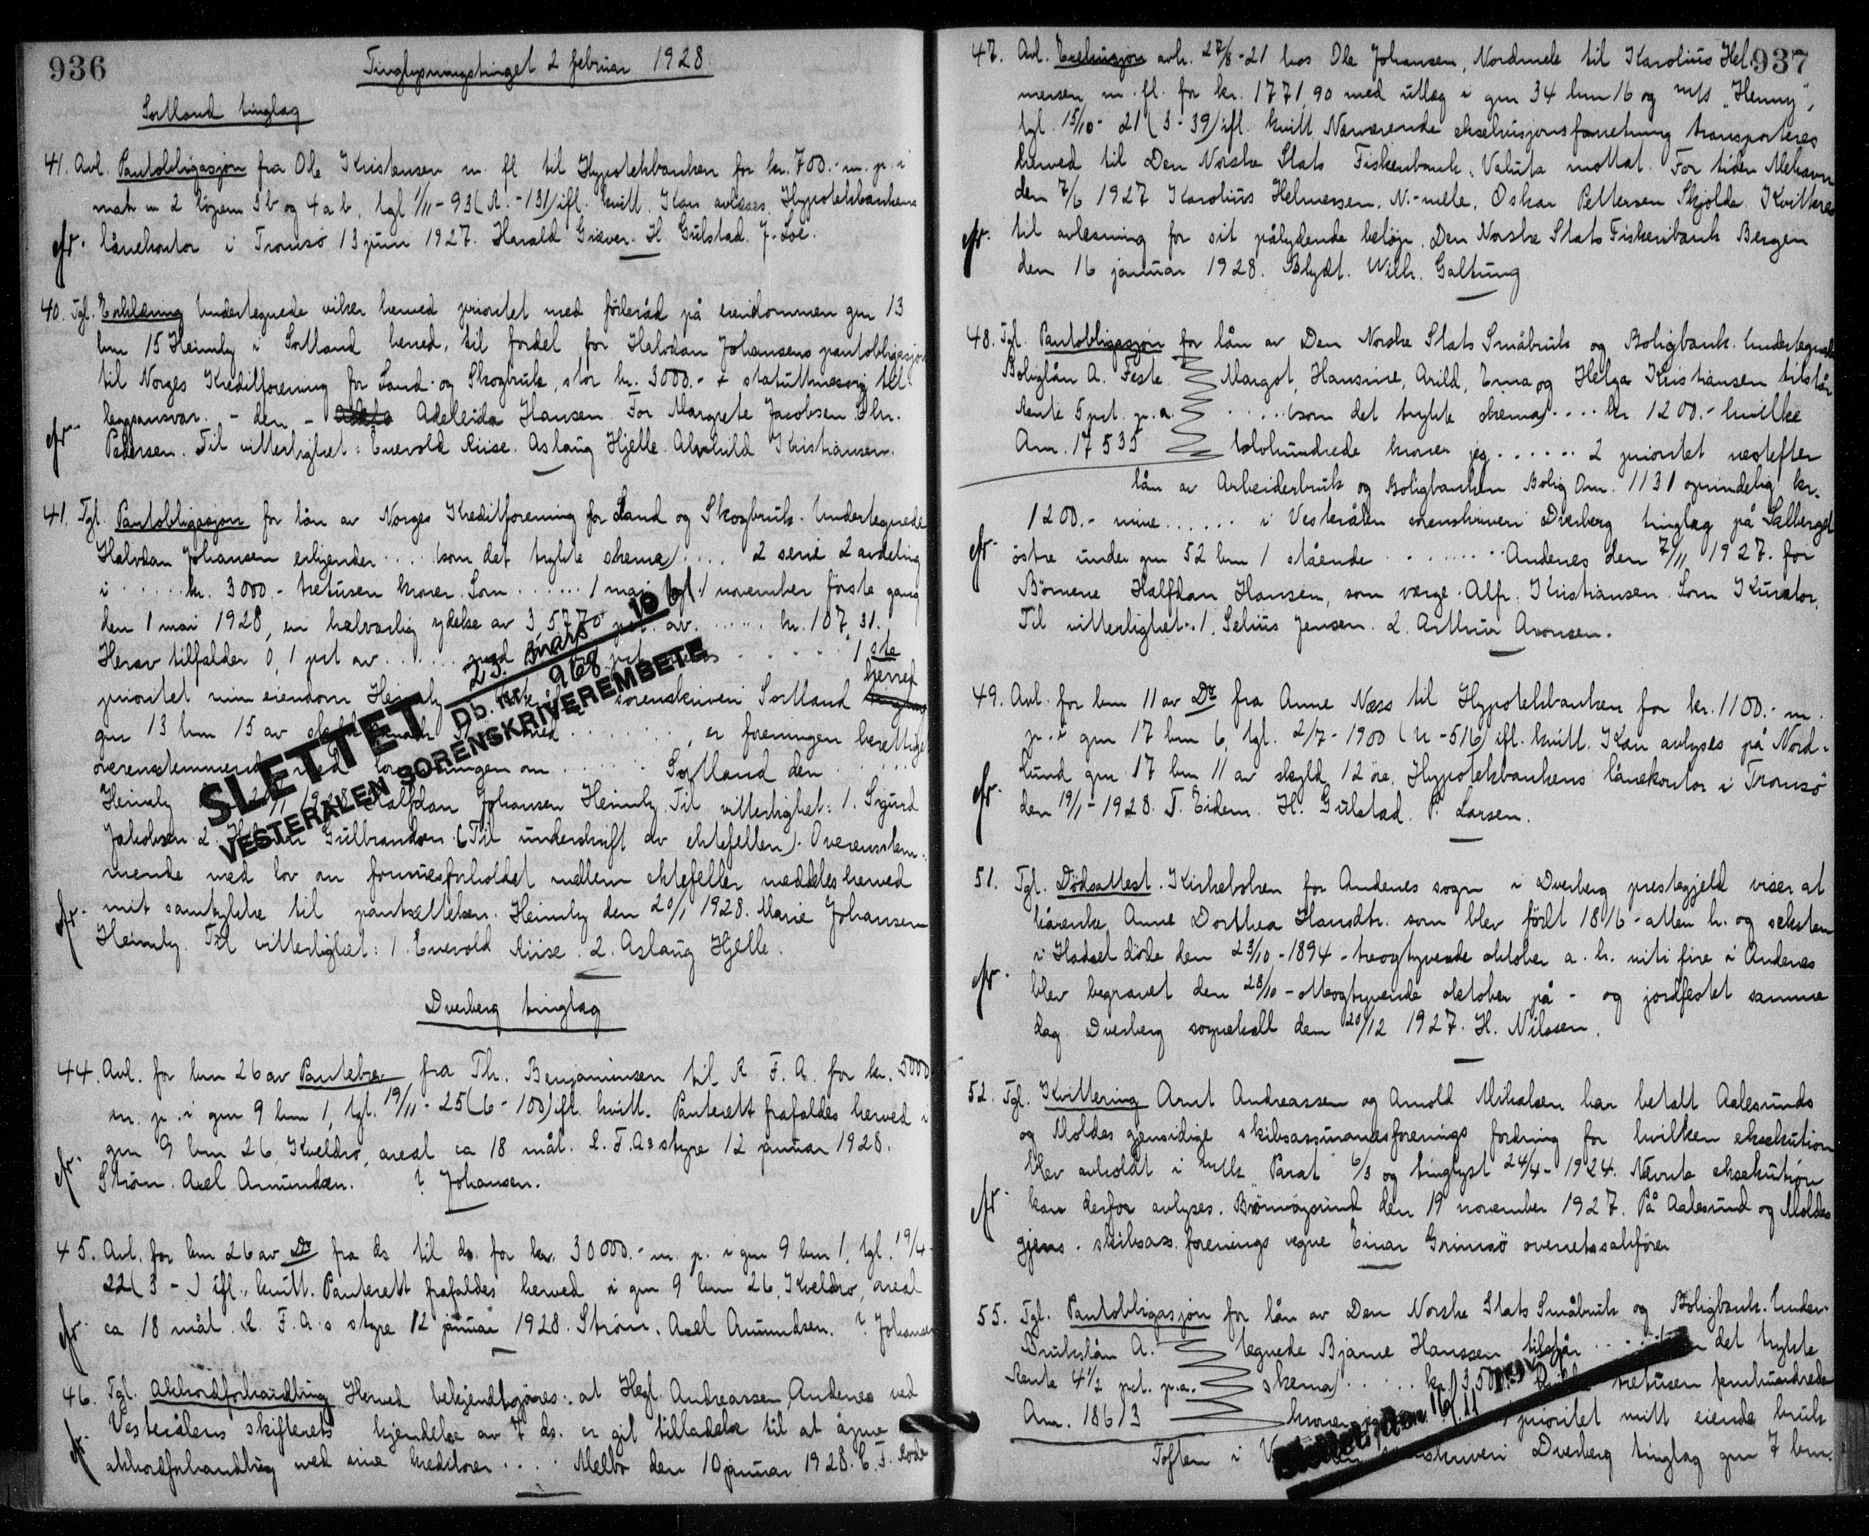 936
Tinglysningstinget 2 februar 1928.
Sortland tinglag
41. Avl. Pantobligasjon fra Ole Kristensen m. fl. til Hypotekbanken for kr. 700.- m. p. i
matr n 2 löpenr 3b og 4 a b, tgl 1/11 - 93 ( R. - 131) ifl. kvitt. Kan avleses. Hypotekbankens
lånekontor i Tromsö 13 juni 1927. Harald Græver. H. Gulstad. J. Loe.
40. Tgl. Erklæring Undertegnede viker herved prioritet med föderåd på eiendommen gnr 13
bnr 15 Heimly i Sortland herred, til fordel for Halvdan Johansens pantobligasjon
til Norges Kreditforening for Land- og Skogbruk, stor kr. 3000.- + statuttmessig til-
leggsansvar. - den - Adeleida Hansen. For Margrete Jacobsen Chr.
Pedersen. Til vitterlighet: Enevold Riise. Aslaug Hjelle. Alvhild Kristiansen.
41. Tgl. Pantobligasjon for lån av Norges Kreditforening for Land og Skogbruk. Undertegnede
Halvdan Johansen erkjender .... (som det trykte skema) .... 2 serie 2 avdeling
i ...... kr. 3000.- tretusen kroner. Som ...... 1 mai og 1 november förste gang
den 1 mai 1928, en halvårlig ydelse av 3,5770 pct. av ...... kr. 107,31.
Herav tilfalder 0,1 pct av ...... 1 ste
prioritet min eiendom Heimly sorenskriveri Sortland herred
gnr 13 bnr 15 av ........., er foreningen berettiget
overensstemmende med ...... Sortland den ......
Heimly 1928 Halfdan Johansen Heimly. Til vitterlighet: 1. Sigurd
Jakobsen 2. Gulbrandsen. (Til underskrift av ektefellen). Overensstem-
mende med lov om formuesforholdet mellem ektefeller meddeles herved
mit samtykke til pantsettelsen. Heimly den 20/1 1928. Marie Johansen
Heimly. Til vitterlighet: 1. Enevold Riise. 2. Aslaug Hjelle.
SLETTET 23. mars 1961
Db. nr. 968
VESTERÅLEN SORENSKRIVEREMBETE
Dverberg tinglag
44. Avl. for bnr 26 av Pantebr. fra Th. Benjaminsen til R. F. A. for kr. 5000
m. p. i gnr 9 bnr 1, tgl. 19/11 - 25 ( 6 - 100) ifl. kvitt. Panterett frafaldes herved i
gnr 9 bnr 26, Kveldro, areal ca 18 mål. R. F. A.s styre 12 januar 1928.
Ström. Axel Amundsen. ? Johansen.
45. Avl. for bnr 26 av Do fra ds til ds. for kr. 30000.- m. p. i gnr 9 bnr 1, tgl. 19/4 -
22 ( 3 - ) ifl. kvitt. Panterett frafaldes herved i gnr 9 bnr 26, Kveldro, areal
ca 18 mål. R. F. A.s styre 12 januar 1928. Ström. Axel Amundsen. ? Johansen
46. Tgl. Akkordforhandling Herved bekjendtgjöres: at Hagl. Andreassen Andenes ved
Vesterålens skifteretts kjendelse av 7 ds. er git tilladelse til at åpne
akkordforhandling med sine kreditorer .... Melbo den 10 januar 1928. C. F.
937
47. Avl. Exekusjon avh. 27/8 - 21 hos Ole Johansen, Nordmele til Karolius Hel-
mersen m. fl. for kr. 1771,90 med utlæg i gnr 34 bnr 16 og m/s "Henny",
tgl. 15/10 - 21 ( 3 - 39) ifl. kvitt. Nærværende eksekusjonsforretning transporteres
herved til Den Norske Stats Fiskeribank. Valuta mottat. For tiden Mehavn
den 7/6 1927 Karolius Helmersen, N.-mele. Oskar Pettersen Skjolde. Kvitteres
til avlesning for sit pålydende belöp. Den Norske Stats Fiskeribank Bergen
den 16 januar 1928. Blydt. Wilh. Galtung
48. Tgl. Pantobligasjon for lån av Den Norske Stats Småbruk og Boligbank. Undertegnede
Boliglån A. Feste Margot, Hansine, Arild, Erna og Helga Kristiansen tilstår
Rente 5 pct. p. a. .... (som det trykte skema) .... kr. 1200.- hvilke
Anr. 17535 tolvhundrede kroner jeg ...... 2 prioritet nestefter
lån av Arbeiderbruk og Boligbanken Bolig Anr. 1131 oprindelig kr.
1200.- mine ...... i Vesterålen sorenskriveri Dverberg tinglag på
östre under gnr 52 bnr 1 stående ........ Andenes den 7/11 1927. for
Börnene Halfdan Hansen, som verge. Alfr. Kristiansen. Som Kurator.
Til vitterlighet: 1. Selius Jensen. 2. Arthur Aronsen.
49. Avl. for bnr 11 av Do fra Anne Næss til Hypotekbanken for kr. 1100.- m.
p. i gnr 17 bnr 6, tgl. 2/7 - 1900 ( U - 516) ifl. kvitt. Kan avlyses på Nord-
lund gnr. 17 bnr 11 av skyld 12 öre. Hypotekbankens lånekontor i Tromsö
den 19/1 - 1928. T. Eidem. H. Gulstad. P. Larsen.
51. Tgl. Dödsattest. Kirkeboken for Andenes sogn i Dverberg prestegjeld viser at
kårenke Anne Dorthea Hansdtr. som blev födt 1816 - atten h. og seksten
i Hadsel döde den 23/10 - 1894 - treogtyvende oktober a. h. niti fire i Andenes
blev begravet den 28/10 - otteogtyvende oktober på - og jordfestet samme
dag. Dverberg sognekall den 20/12 1927. H. Nilssen.
52. Tgl. Kvittering Arnt Andreassen og Arnold Mikalsen har betalt Aalesunds
og Moldes gjensidige skibsassuranseforenings fordring for hvilken eksekution
blev avholdt i m/k "Parat" 6/3 og tinglyst 24/4 - 1924. Nevnte eksekution
kan derfor avlyses. Brönnöysund den 19 november 1927. På Aalesund og Moldes
gjens. skibsass. forenings vegne Einar Grimsö overretssakförer
55. Tgl. Pantobligasjon for lån av Den Norske Stats Småbruk og Boligbank. Under-
Brukslån A. tegnede Bjarne Hanssen tilstår .... det trykte
Rente 4 1/2 pct. p.a. skema ...... tretusen femhundrede
Anr. 18613 kroner prioritet mitt eiende bruk
Toften i Dverberg tinglag gnr 7 bnr.
Slettet, den 16/11